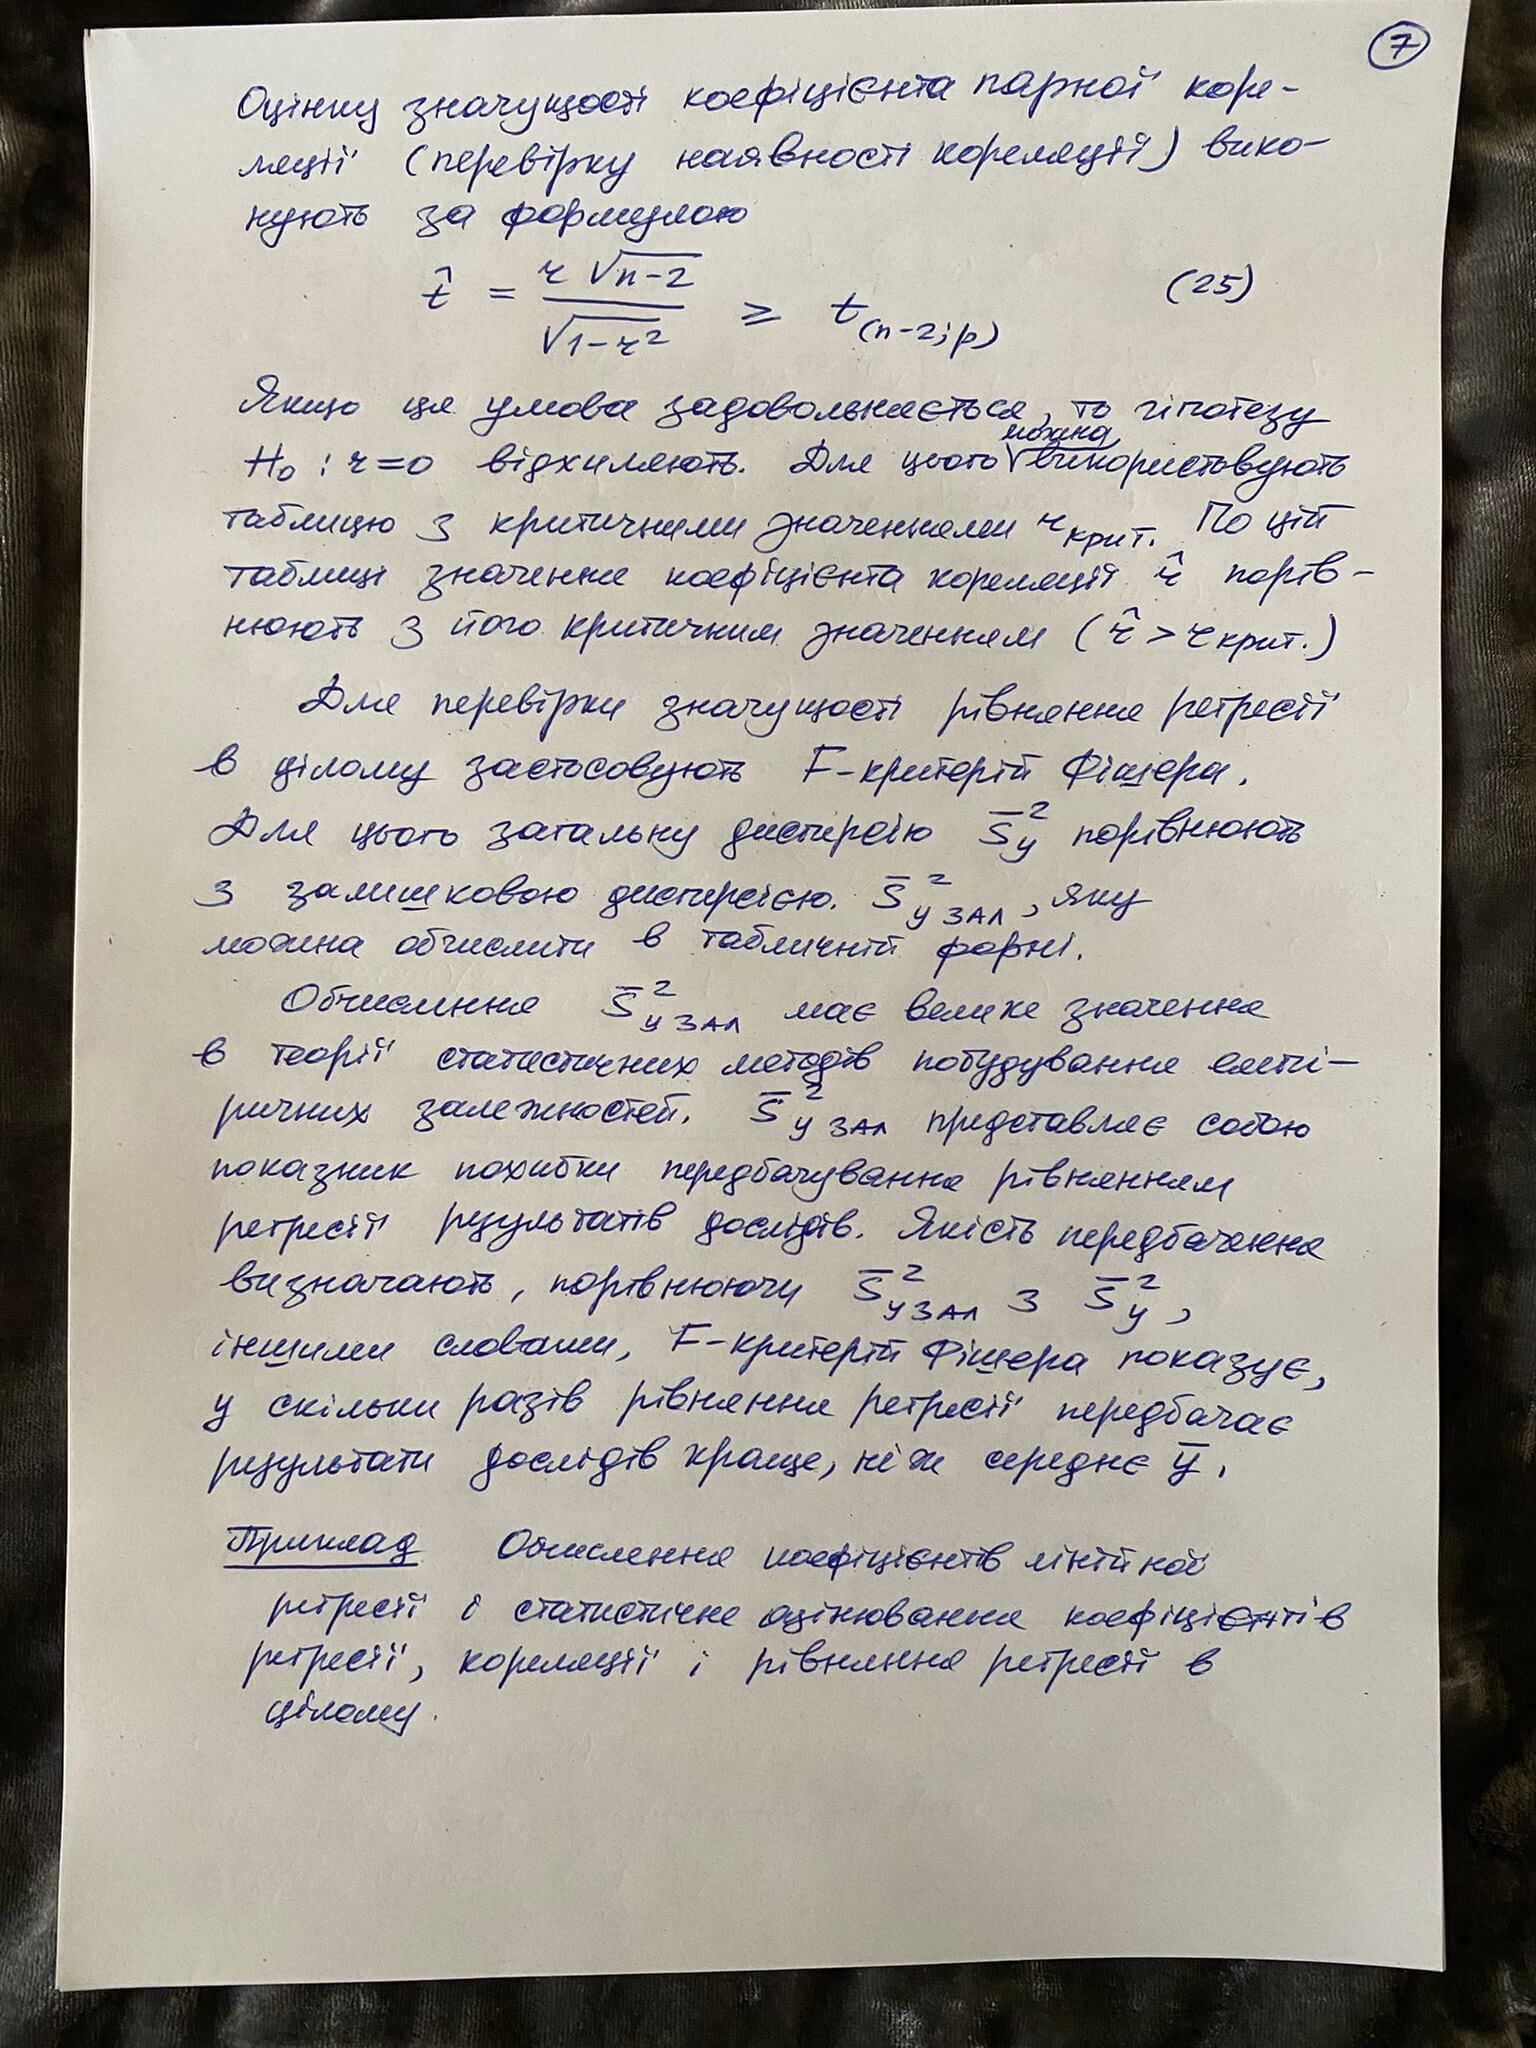 7
Оцінку значущості коефіцієнта парної коре-
ляції (перевірку наявності кореляції) вико-
нують за формулою
t̂ = r √n-2 / √1-r² ≥ t(n-2; p) (25)
Якщо ця умова задовольняється, то гіпотезу
можна
H₀ : r=0 відхиляють. Для цього використовують
таблицю з критичними значеннями r крит. По цій
таблиці значення коефіцієнта кореляції r̂ порів-
нюють з його критичним значенням (r̂ > r крит.)
Для перевірки значущості рівняння регресії
в цілому застосовують F-критерій Фішера.
Для цього загальну дисперсію S̄²y порівнюють
з залишковою дисперсією. S̄²y ЗАЛ, яку
можна обчислити в табличній формі.
Обчислення S̄²y ЗАЛ має велике значення
в теорії статистичних методів побудування емпі-
ричних залежностей. S̄²y ЗАЛ представляє собою
показник похибки передбачування рівнянням
регресії результатів дослідів. Якість передбачення
визначають, порівнюючи S̄²y ЗАЛ з S̄²y,
іншими словами, F-критерій Фішера показує,
у скільки разів рівняння регресії передбачає
результати дослідів краще, ніж середнє ȳ.
Приклад Обчислення коефіцієнтів лінійної
регресії і статистичне оцінювання коефіцієнтів
регресії, кореляції і рівняння регресії в
цілому.